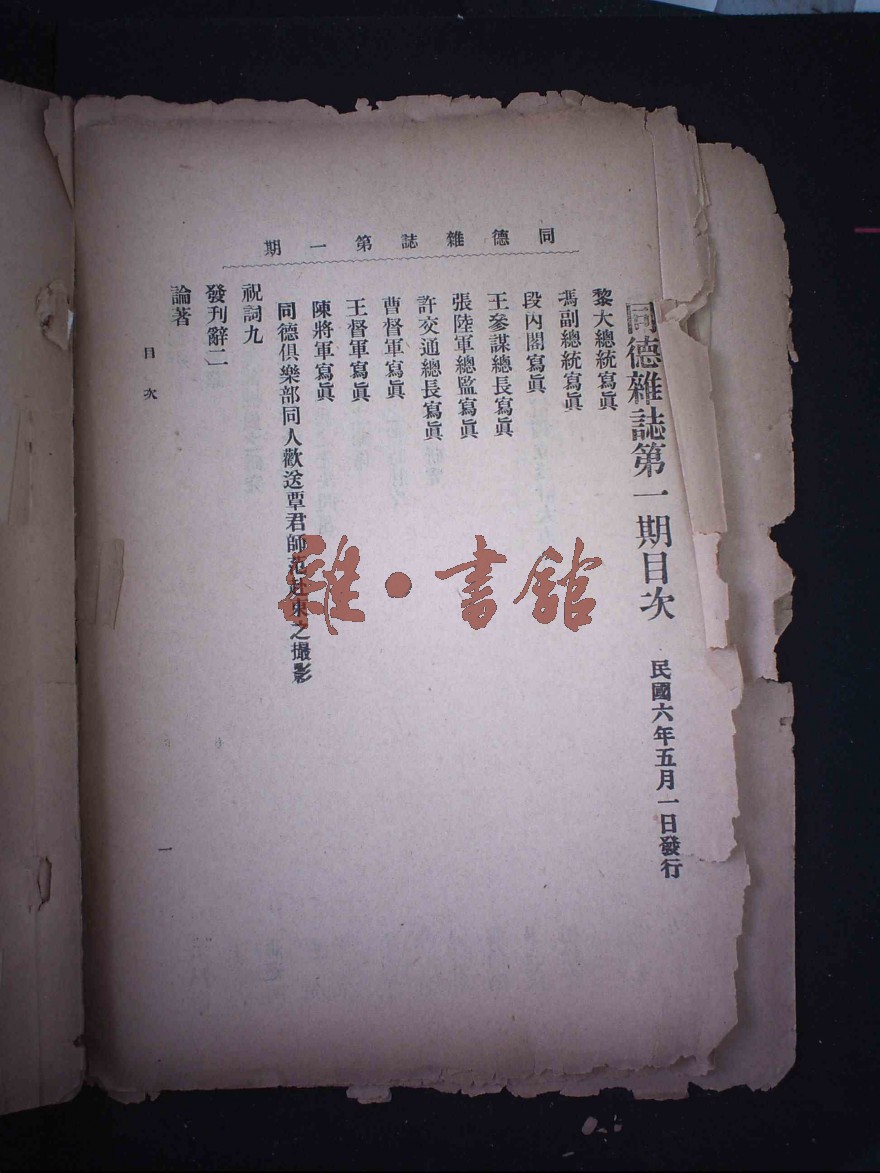 同德雜誌第一期
同德雜誌第一期目次　民國六年五月一日發行
黎大總統寫眞
馮副總統寫眞
段內閣寫眞
王參謀總長寫眞
張陸軍總監寫眞
許交通總長寫眞
曹督軍寫眞
王督軍寫眞
陳將軍寫眞
同德俱樂部同人歡送覃君師范赴東之撮影
祝詞九
發刊辭二
論著
目次
一
雜·書館